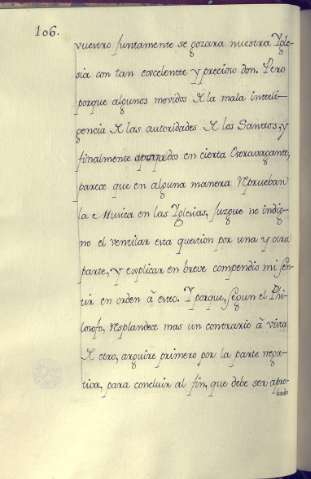 106.
vuestro juntamente se gozara nuestra Ygle-
sia con tan excelente y precioso don. Pero
porque algunos movidos de la mala inteli-
gencia de las autoridades de los Santos, y
finalmente apoyados en cierta Extravagante,
parece que en alguna manera reprueban
la Musica en las Yglesias, juzgue no indig-
no el ventilar esta question por una y otra
parte, y explicar en breve compendio mi sen-
tir en orden à esto. Y porque, segun el Phi-
losofo, resplandece mas un contrario à vista
de otro, arguire primero por la parte nega-
tiva, para concluir al fin, que debe ser abra-
zada